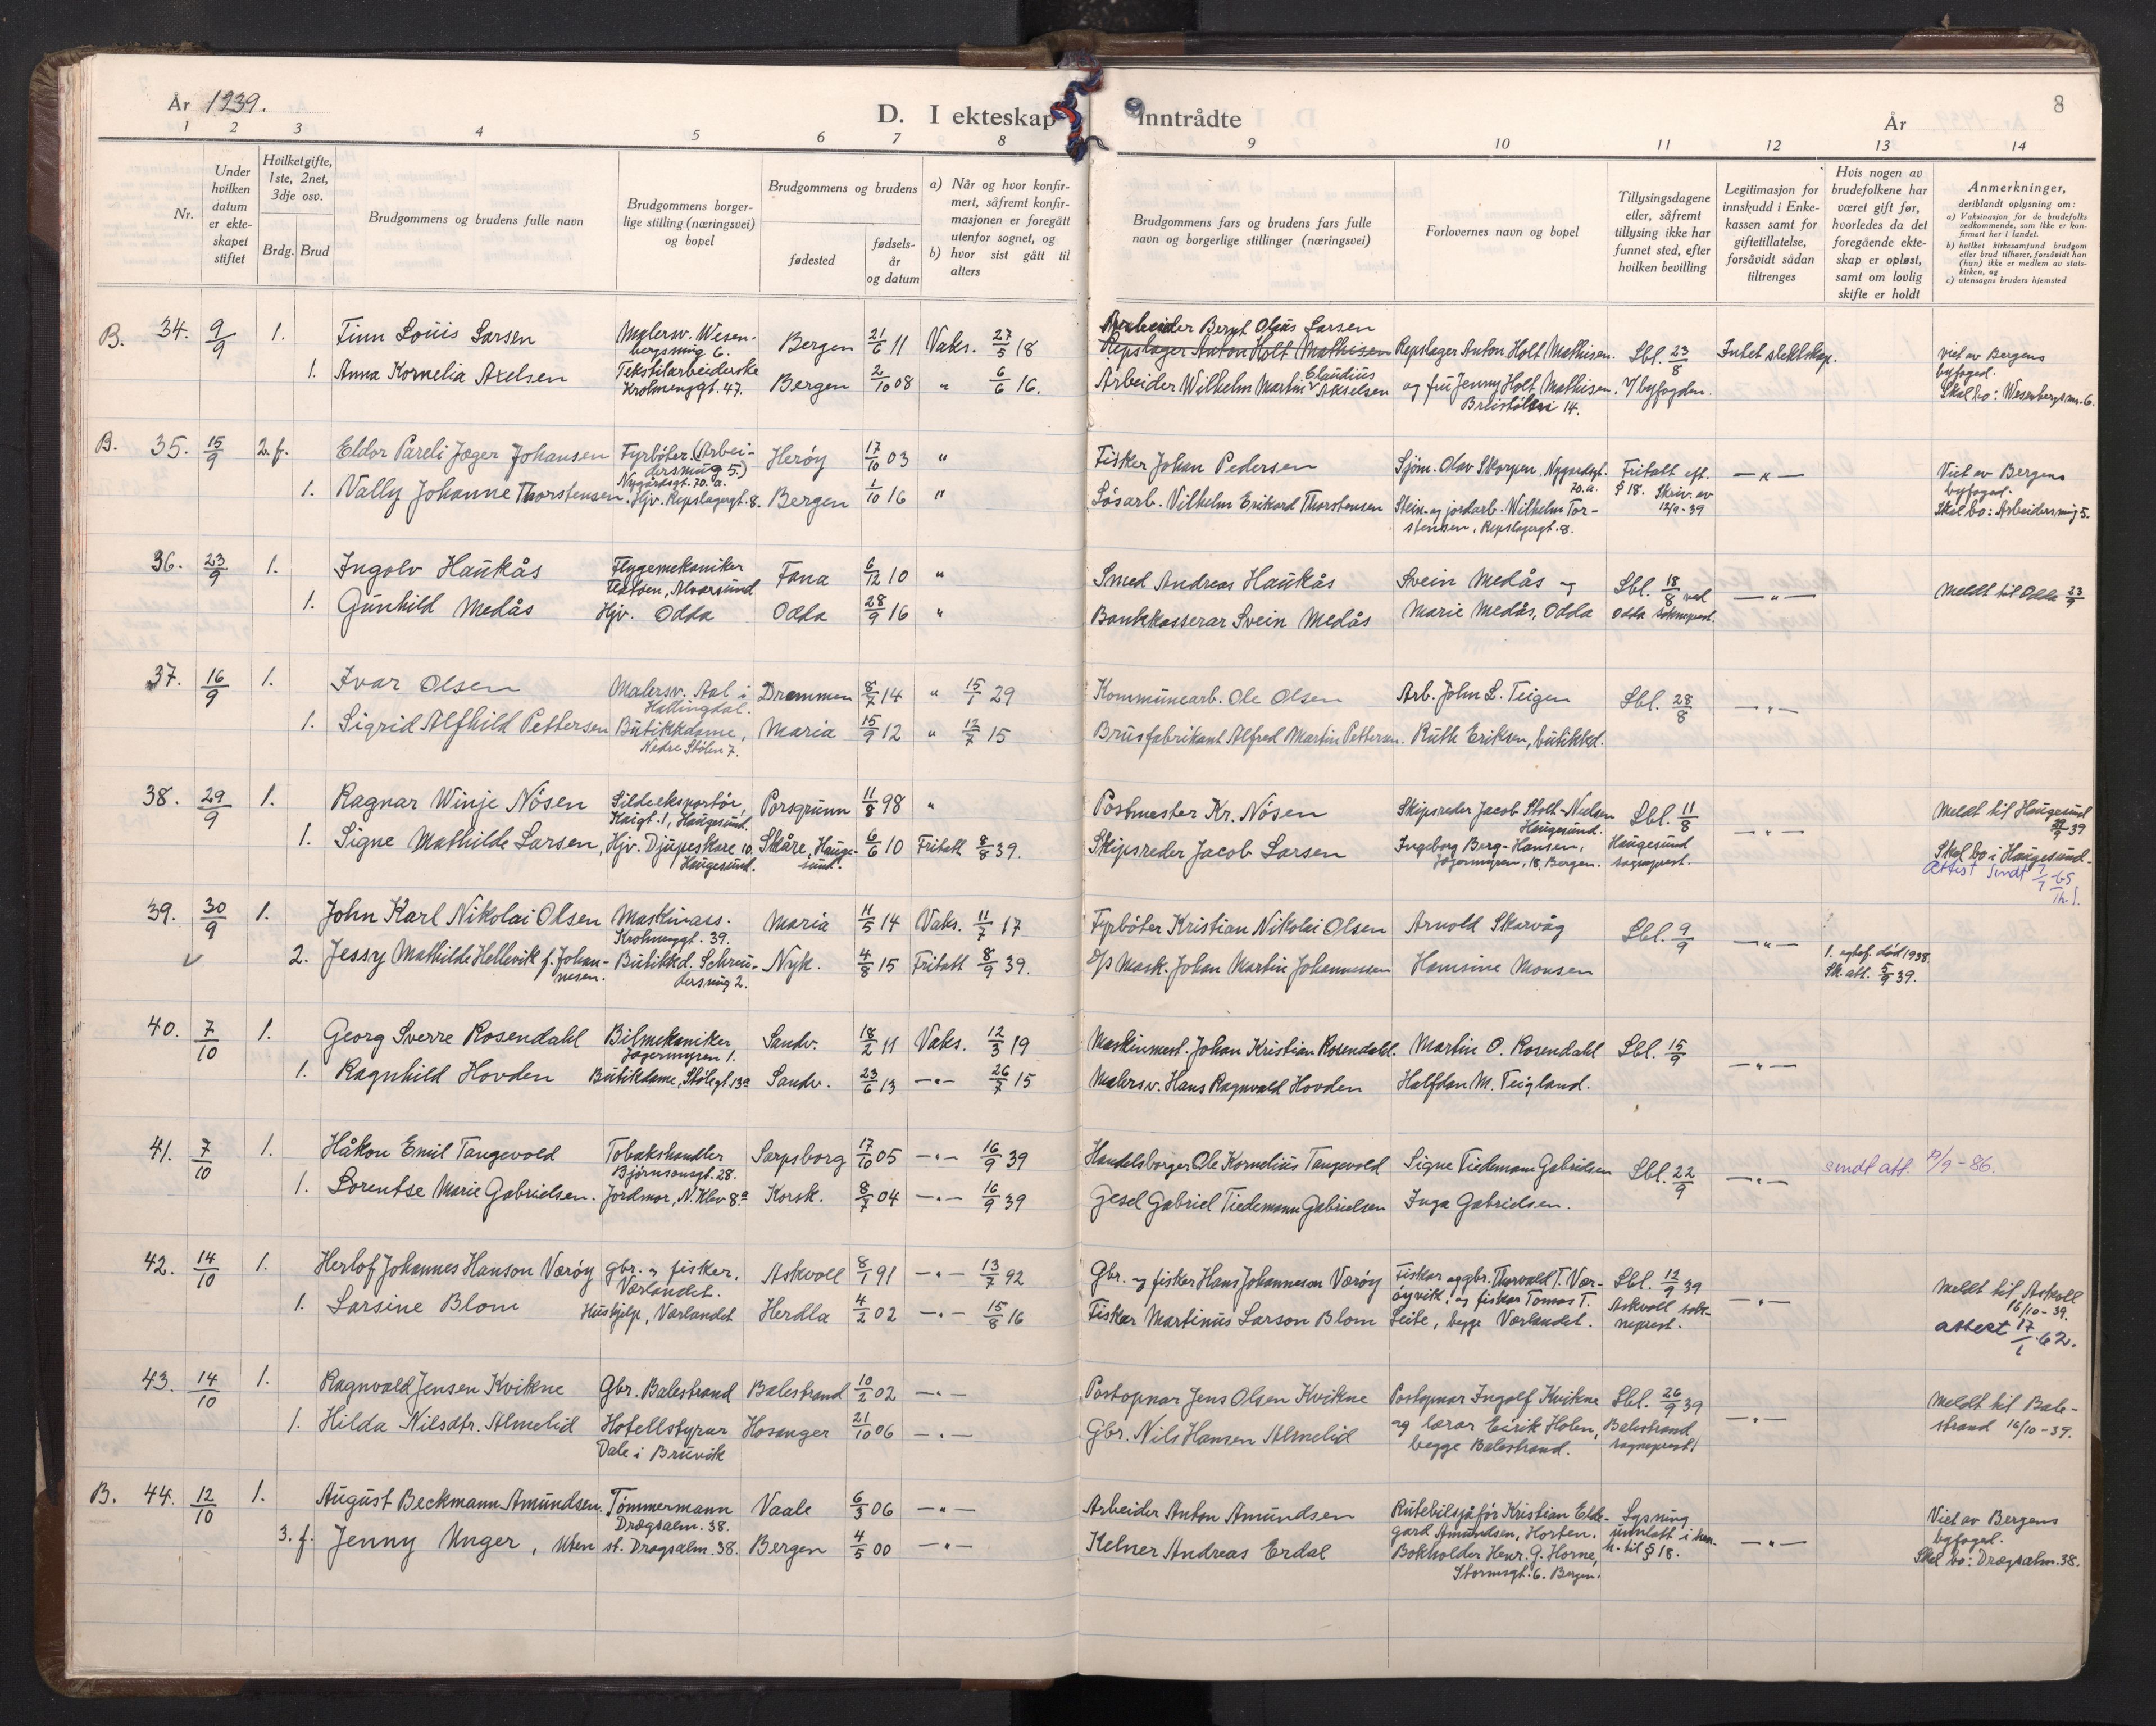 År 1939.
D. I ekteskap inntrådte
År
8
1 2 3 4 5 6 7 8 9 10 11 12 13 14
Nr.
Under hvilken datum er ekte-skapet stiftet
Hvilket gifte, 1ste, 2net, 3dje osv.
Brdg. Brud
Brudgommens og brudens fulle navn
Brudgommens borger-lige stilling (næringsvei) og bopel
Brudgommens og brudens
fødested
fødsels-år og datum
a) Når og hvor konfir-mert, såfremt konfir-masjonen er foregått utenfor sognet, og
b) hvor sist gått til alters
Brudgommens fars og brudens fars fulle navn og borgerlige stillinger (næringsvei)
Forlovernes navn og bopel
Tillysingsdagene eller, såfremt tillysing ikke har funnet sted, efter hvilken bevilling
Legitimasjon for innskudd i Enke-kassen samt for giftetillatelse, forsåvidt sådan tiltrenges
Hvis nogen av brudefolkene har været gift før, hvorledes da det foregående ekte-skap er opløst, samt om lovlig skifte er holdt
Anmerkninger, deriblandt oplysning om:
a) Vaksinasjon for de brudefolks vedkommende, som ikke er kon-firmert her i landet.
b) hvilket kirkesamfund brudgom eller brud tilhører, forsåvidt han (hun) ikke er medlem av stats-kirken, og
c) utensogns bruders hjemsted
B. 34. 9/9 1. Finn Louis Larsen Malersv. Wesen-bergsmug 6. Bergen 21/6 11 Vaks. 27/5 18 Arbeider Bernt Olaus Larsen Repslager Anton Holt Mathisen Repslager Anton Holt Mathisen. Lbl. 23/8 Intet slektskap. viet av Bergens byfogd.
1. Anna Kornelia Axelsen Tekstilarbeiderske Krohnenggt. 47. Bergen 2/10 08 " 6/6 16. Arbeider Wilhelm Martin Claudius Akselsen og fru Jenny Holt Mathisen. Breistølsvei 14. v/ byfogden. Skal bo: Wesenbergsm. 6.
B. 35. 15/9 2. f. Eldor Pareli Jæger Johansen Fyrbøter. (Arbei-dersmug 5.) Nygårdsgt. 70. a. Herøy 17/10 03 " Fisker Johan Pedersen Sjøm. Olav Skorpen, Nygårdsgt. 70.a. Fritatt eft. § 18. Skriv. av 12/9-39 —"— Viet av Bergens byfogd.
1. Vally Johanne Thorstensen. Hjv. Repslagergt. 8. Bergen 1/10 16 " Løsarb. Vilhelm Erikard Thorstensen Stein- og jordarb. Wilhelm Tor-stensen, Repslagergt. 8. Skal bo: Arbeidersmug 5.
36. 23/9 1. Ingolv Haukås Flygemekaniker Flatøen, Alversund Fana 6/12 10 " Smed Andreas Haukås Svein Medås og Lbl. 18/8 ved —"— Meldt til Odda 23/9
1. Gunhild Medås Hjv. Odda Odda 28/9 16 " Bankkasserar Svein Medås Marie Medås, Odda Odda sokneprest.
37. 16/9 1. Ivar Olsen Malersv. Aal i Hallingdal. Drammen 8/7 14 " 15/7 29 Kommunearb. Ole Olsen Arb. John L. Teigen Lbl. 28/8 —"—
1. Sigrid Alfhild Pettersen Butikkdame, Nedre Stølen 7. Maria 15/9 12 " 12/7 15 Brusfabrikant Alfred Martin Pettersen. Ruth Eriksen, butikkd.
38. 29/9 1. Ragnar Winje Nøsen Sildeeksportør, Kaigt. 1, Haugesund. Porsgrunn 11/8 98 " Postmester Kr. Nøsen Skipsreder Jacob Stolt-Nielsen Haugesund. Lbl. 11/8 —"— Meldt til Haugesund 29/9 39
1. Signe Mathilde Larsen, Hjv. Djupeskare 10. Haugesund. Skåre, Hauge-sund. 6/6 10 Fritatt 8/8 39. Skipsreder Jacob Larsen Ingeborg Berg-Hansen, Jægermyren, 18, Bergen. Haugesund sogneprest. Skal bo i Haugesund. Attest sendt 7/7-65
39. 30/9 1. John Karl Nikolai Olsen Maskinass. Krohnengt. 39. Maria 11/5 14 Vaks. 11/7 17 Fyrbøter Kristian Nikolai Olsen Arnold Skarvåg Lbl. 9/9 —"—
2. Jessy Mathilde Hellevik f. Johan-nesen. Butikkd. Schreu-dersmug 2. Nyk. 4/8 15 Fritatt 8/9 39. Mask. Johan Martin Johannessen Hansine Monsen 1. egtef. død 1938. Sk. att. 5/9 39.
40. 7/10 1. Georg Sverre Rosendahl Bilmekaniker Jægermyren 1. Sandv. 18/2 11 Vaks. 12/3 19 Maskinmest. Johan Kristian Rosendahl. Martin O. Rosendahl Lbl. 15/9 —"—
1. Ragnhild Hovden Butikdame, Stølegt. 13a Sandv. 23/6 13 —"— 26/7 15 Malersv. Hans Ragnvald Hovden Halfdan M. Teigland.
41. 7/10 1. Håkon Emil Tangevold Tobakshandler Bjørnsonsgt. 28. Sarpsborg 17/10 05 —"— 16/9 39 Handelsborger Ole Kornelius Tangevold Signe Tiedemann Gabrielsen Lbl. 22/9 —"— sendt att. /9-86.
1. Lorentse Marie Gabrielsen. Jordmor, N. Klev 8a Korsk. 8/7 04 —"— 16/9 39 Gjesel Gabriel Tiedemann Gabrielsen Inga Gabrielsen.
42. 14/10 1. Herlof Johannes Hanson Værøy gbr. og fisker, Værlandet. Askvoll 8/1 91 —"— 13/7 92 Gbr. og fisker Hans Johanneson Værøy Fisker og gbr. Thorvald T. Vær-øyvik, og fisker Tomas T. Lbl. 12/9 39 —"— Meldt til Askvoll 16/10-39.
1. Larsine Blom Hushjelp, Værlandet Herdla 4/2 02 —"— 15/8 16 Fisker Martinus Larson Blom Leite, begge Værlandet. Askvoll sok-neprest. attest 17/1.62.
43. 14/10 1. Ragnvald Jensen Kvikne Gbr. Balestrand Balestrand 10/2 02 —"— Postopnar Jens Olsen Kvikne Postopnar Ingolf Kvikne Lbl. 26/9 39 —"— Meldt til Bale-strand 16/10-39.
1. Hilda Nilsdtr. Almelid Hotellstyrar Dale i Bruvik Hosanger 21/10 06 —"— Gbr. Nils Hansen Almelid og lærar Eirik Holen, begge Balestrand. Balestrand sogneprest.
B. 44. 12/10 1. August Beckmann Amundsen. Tømmermann Drægsalm. 38. Vaale 6/3 06 —"— Arbeider Anton Amundsen Rutebilsjåfør Kristian Elde-gard Amundsen, Horten. Lysning unnlatt i hen-h. til § 18. —"— Viet av Bergens byfogd.
3. f. Jenny Unger, Uten st. Drægsalm. 38. Bergen 4/5 00 —"— Kelner Andreas Erdal Bokholder Henr. G. Horne, Stormsgt. 6. Bergen. Skal bo: Drægsalm. 38.